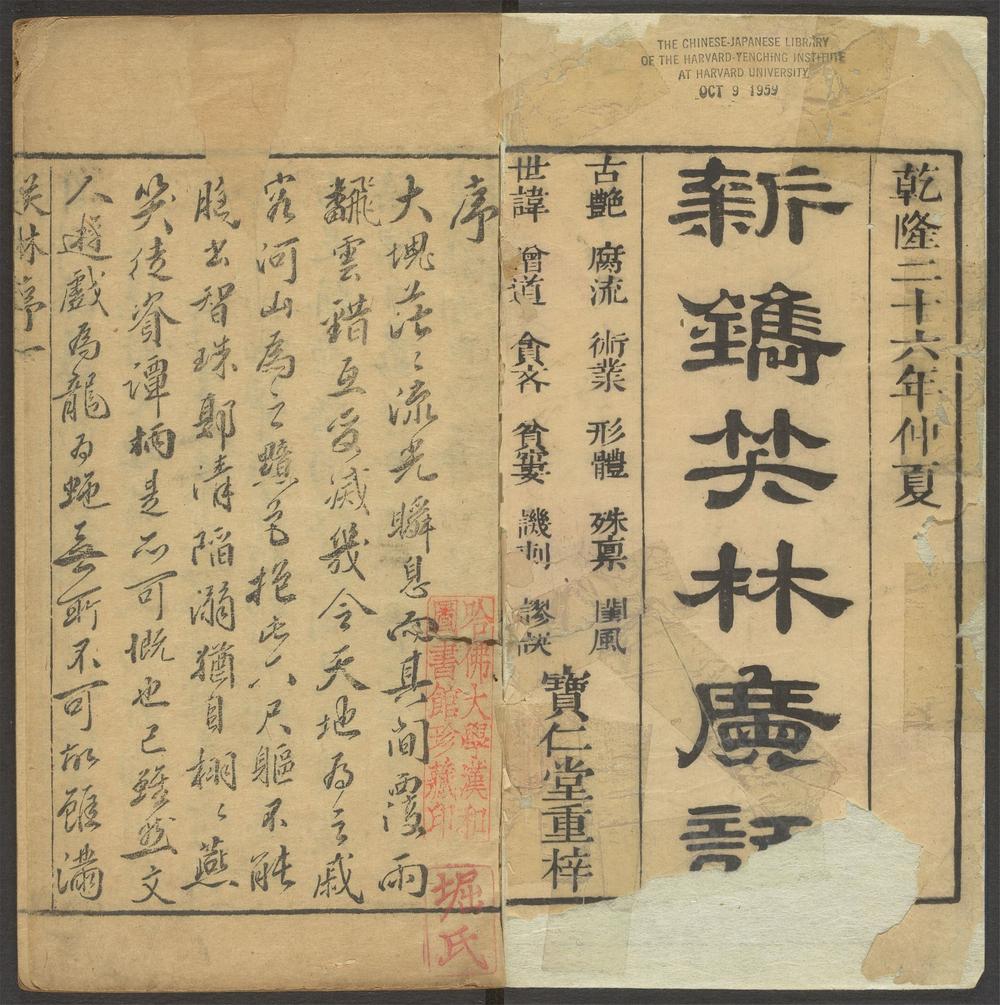 THE CHINESE-JAPANESE LIBRARY
OF THE HARVARD-YENCHING INSTITUTE
AT HARVARD UNIVERSITY
OCT 9 1959
乾隆二十六年仲夏
新鐫笑林廣記
古艷 腐流 術業 形體 殊禀 閨風
世諱 僧道 貪吝 貧窶 譏刺 謬誤
寶仁堂重梓
序
大塊茫〻流光瞬息而其間覆雨
翻雲錯互變滅幾令天地為之戚
容河山為之黯色抱此六尺軀不能
脫出智珠
清陷溺猶自栩〻燕
笑徒資譚柄是不可慨也已雖然文
人遊戲為龍為蛇無所不可故雖
笑林序 一
哈佛大學漢和
圖書館珍藏印
堀氏